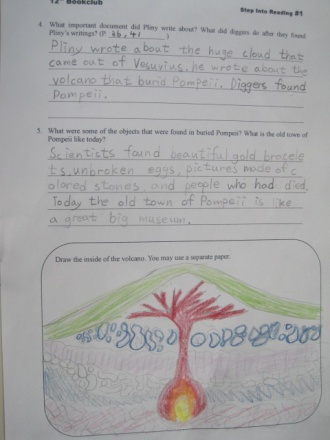 12th Bookclub
Step Into Reading #1
4. What important document did Pliny write about? What did diggers do after they found
Pliny's writings? (P. 36, 41 )
Pliny wrote about the huge cloud that
came out of Vesuvius. he wrote about the
volcano that burid Pompeii. Diggers found
Pompeii.
5. What were some of the objects that were found in buried Pompeii? What is the old town of
Pompeii like today?
Scientists found beautiful gold bracele
ts, unbroken eggs, pictures made of c
olared stones, and people who had died.
Today the old town of Pompeii is like
a great big museum.
Draw the inside of the volcano. You may use a separate paper.